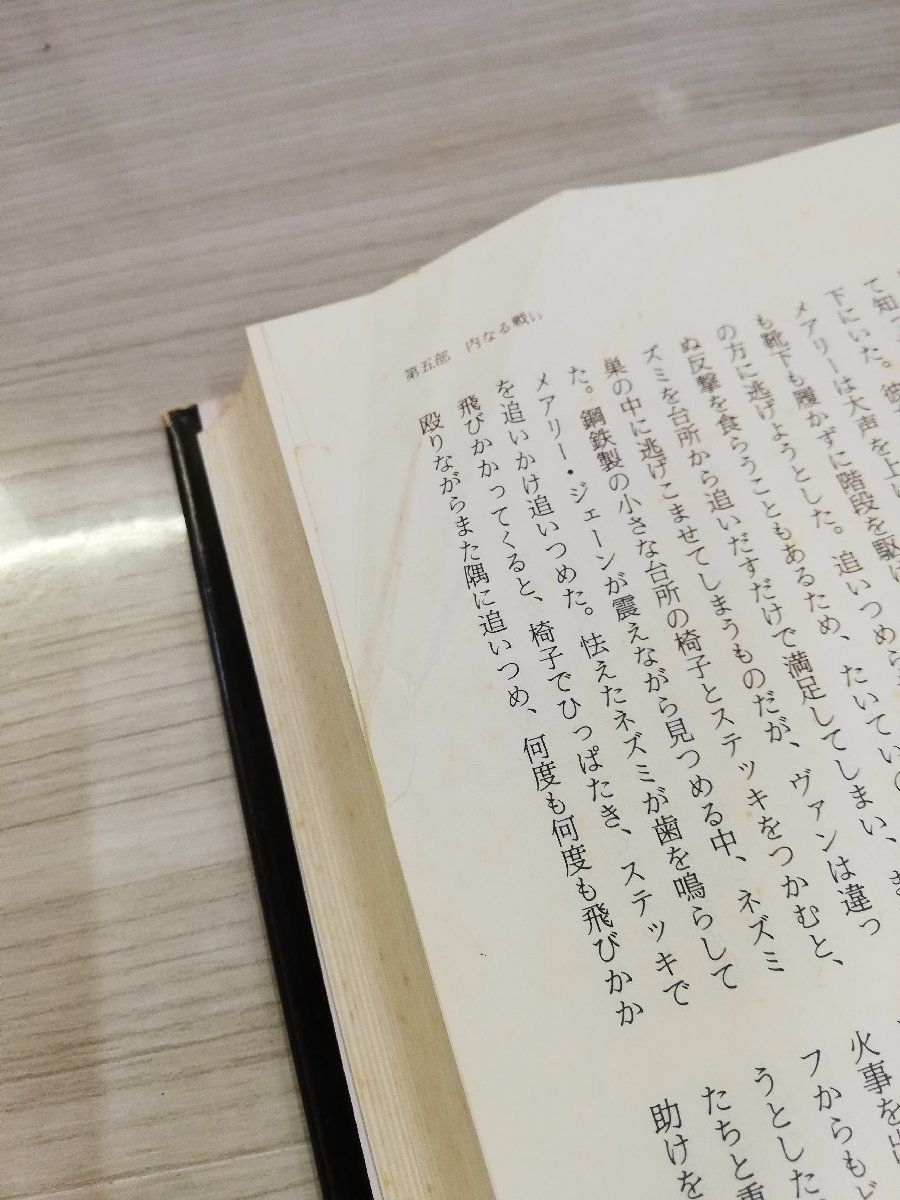 第五部 内なる戦い
て知
下にいた。彼
メアリーは大声を上げ
も靴下も履かずに階段を駆け
の方に逃げようとした。追いつめら
ぬ反撃を食らうこともあるため、たいていの
ズミを台所から追いだすだけで満足してしまい、ま
巣の中に逃げこませてしまうものだが、ヴァンは違っ
た。鋼鉄製の小さな台所の椅子とステッキをつかむと、
メアリー・ジェーンが震えながら見つめる中、ネズミ
を追いかけ追いつめた。怯えたネズミが歯を鳴らして
飛びかかってくると、椅子でひっぱたき、ステッキで
殴りながらまた隅に追いつめ、何度も何度も飛びかか
火事を
フからもど
うとした
たちと
助けを